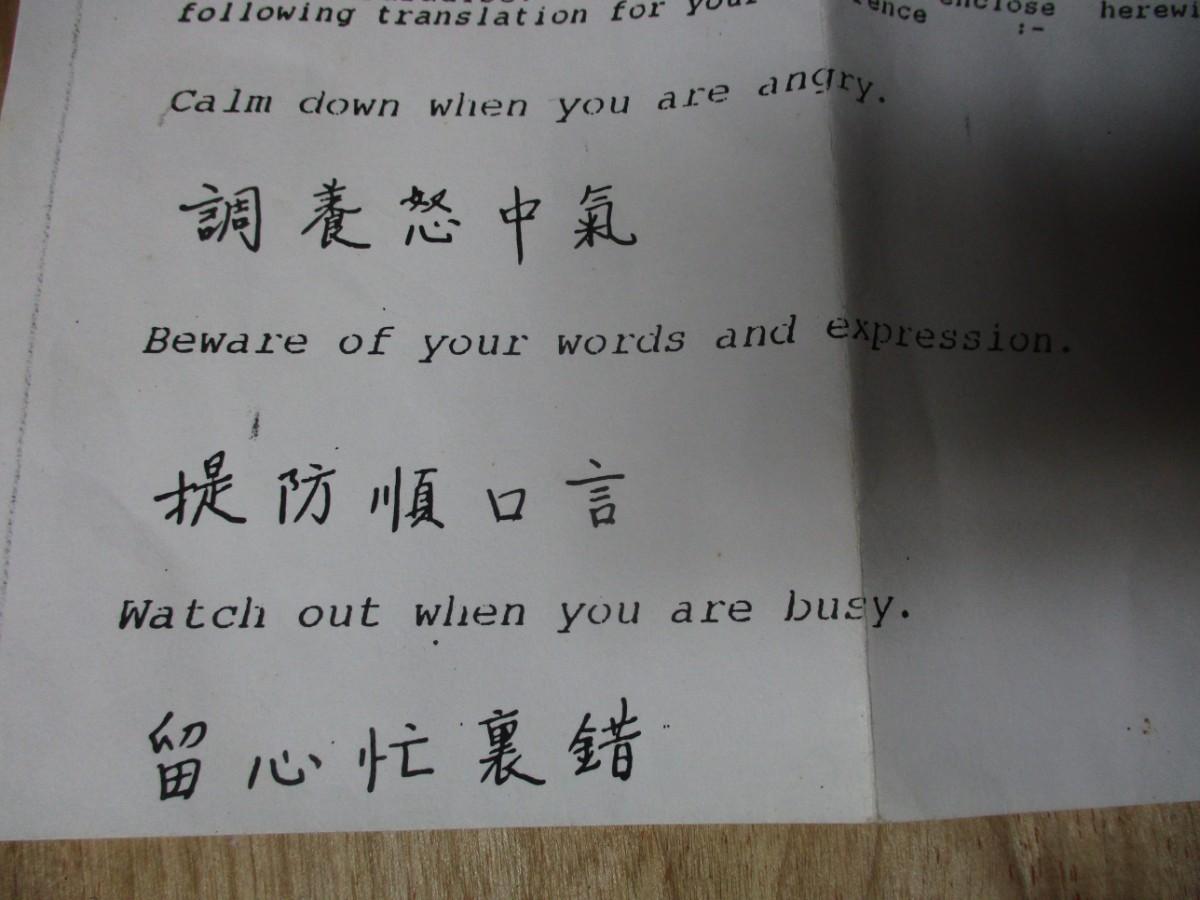 following translation for your
enclose herewi
:-
Calm down when you are angry.
調養怒中氣
Beware of your words and expression.
提防順口言
Watch out when you are busy.
留心忙裏錯